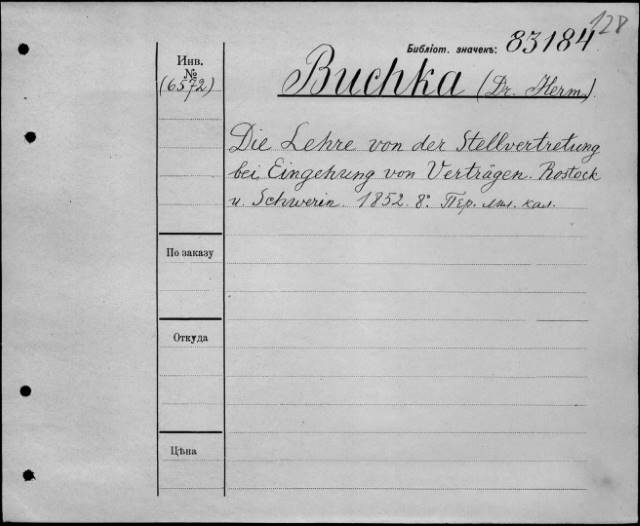 128
Библіот. значекъ: 83184
Инв.
№
(6572)
Buchka (Dr. Herm.)
Die Lehre von der Stellvertretung
bei Eingehung von Verträgen. Rostock
u. Schwerin. 1852. 8º. Пер.
По заказу
Откуда
Цѣна